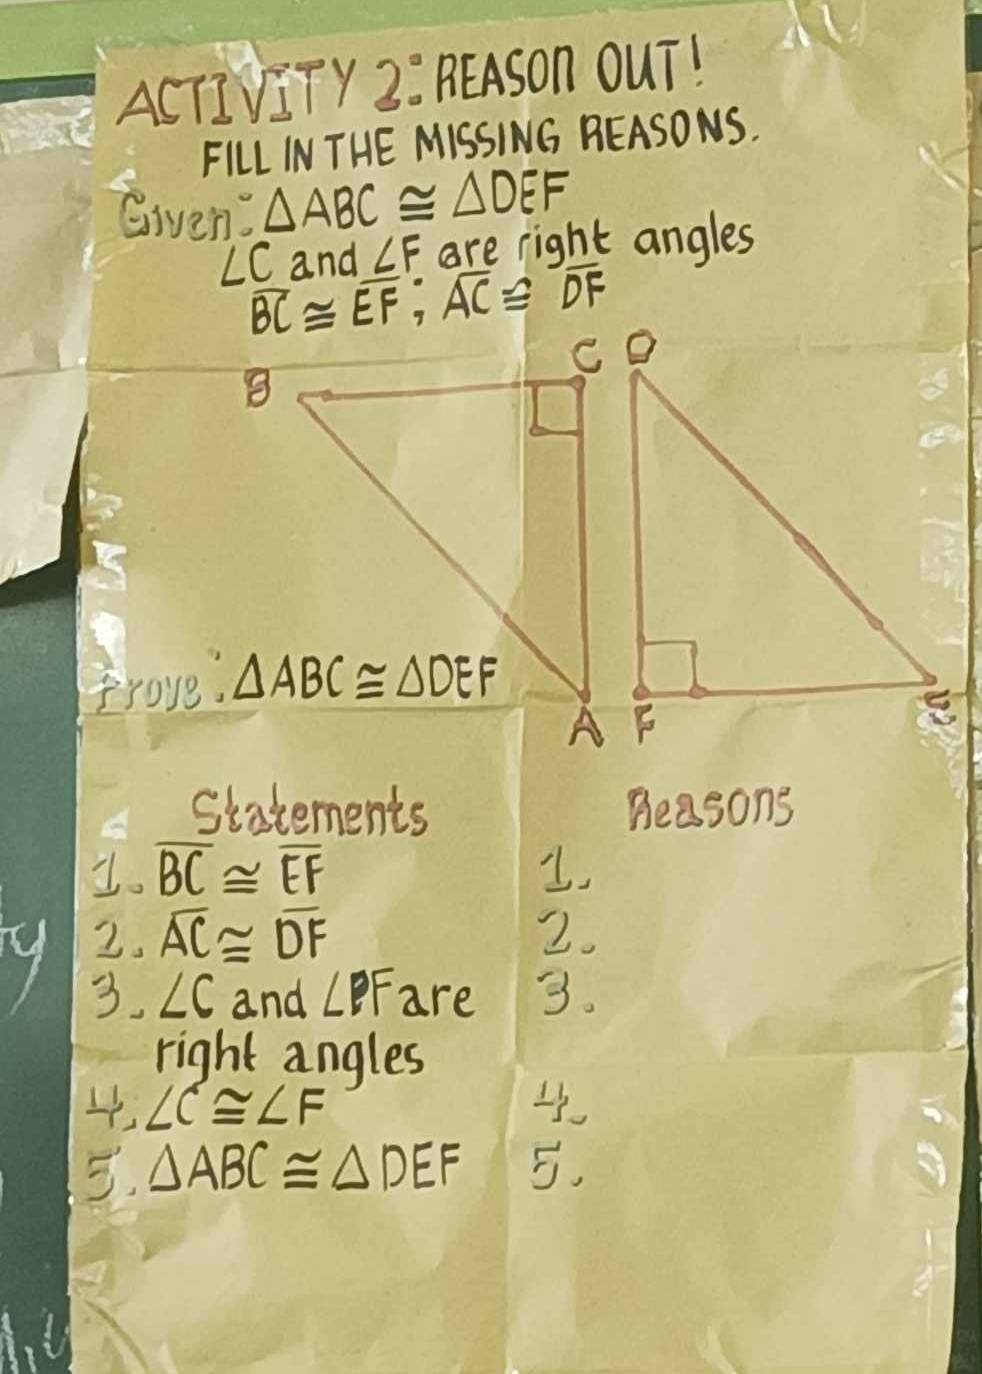 ACTIVITY 2: REASON OUT!
FILL IN THE MISSING REASONS.
Given: △ABC ≅ △DEF
∠C and ∠F are right angles
B̅C̅ ≅ E̅F̅ ; A̅C̅ ≅ D̅F̅
B C D
Prove: △ABC ≅ △DEF
A F E
Statements Reasons
1. B̅C̅ ≅ E̅F̅ 1.
2. A̅C̅ ≅ D̅F̅ 2.
3. ∠C and ∠F are 3.
right angles
4. ∠C ≅ ∠F 4.
5. △ABC ≅ △DEF 5.